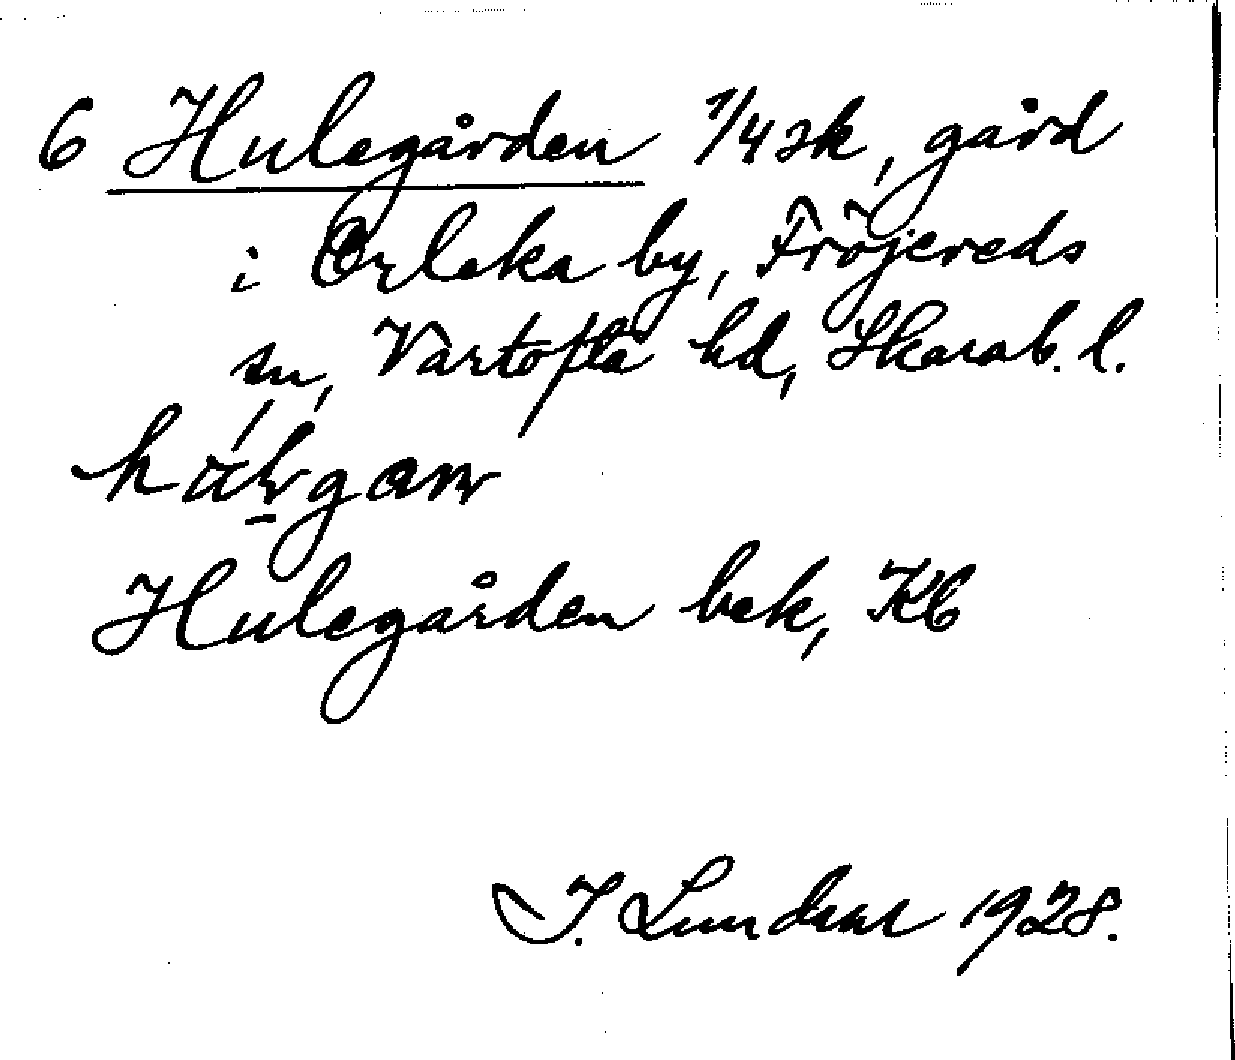 6 Hulegården 1/4 sk, gård
i Orleka by, Fröjereds
sn, Vartofta hd, Skarab. l.
Hulegården bek, Kb
I. Lundahl 1928.